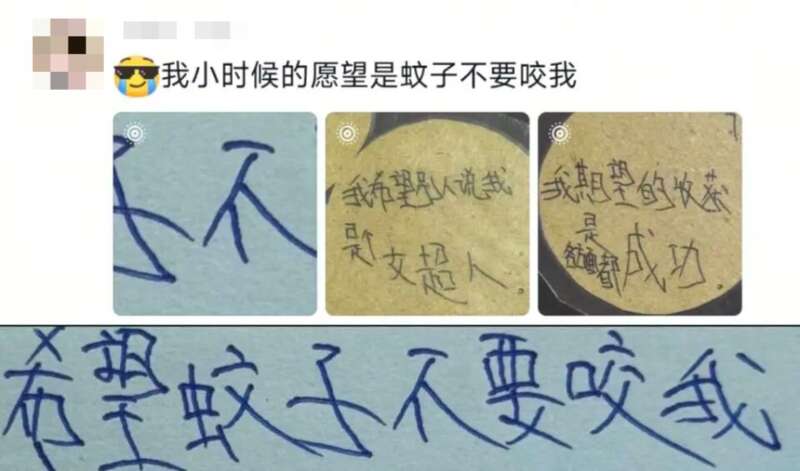 我小时候的愿望是蚊子不要咬我
子不
我希望别人说我
是女超人。
我期望的收获
是
都成功。
希望蚊子不要咬我